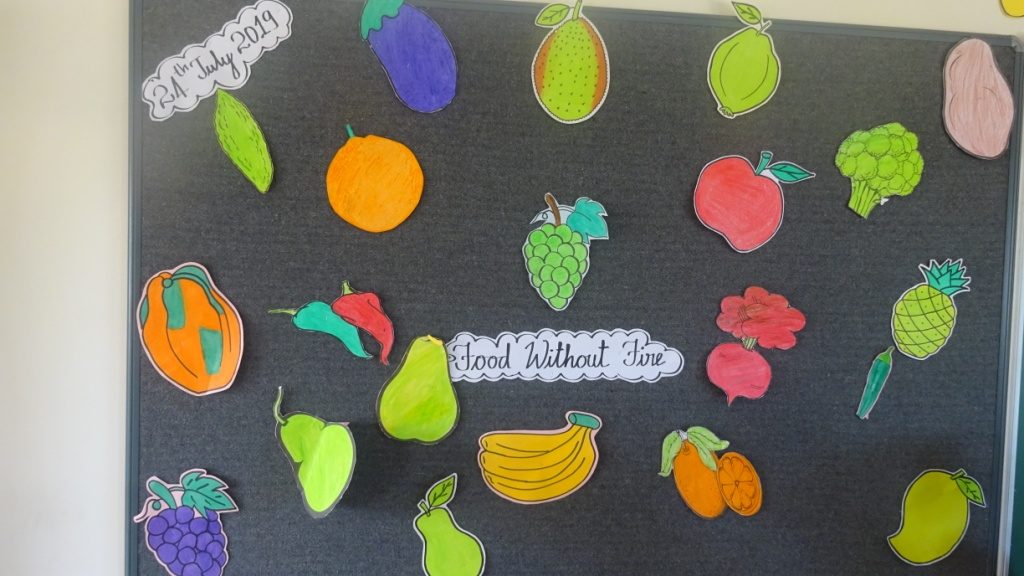 24th July 2019
Food Without Fire